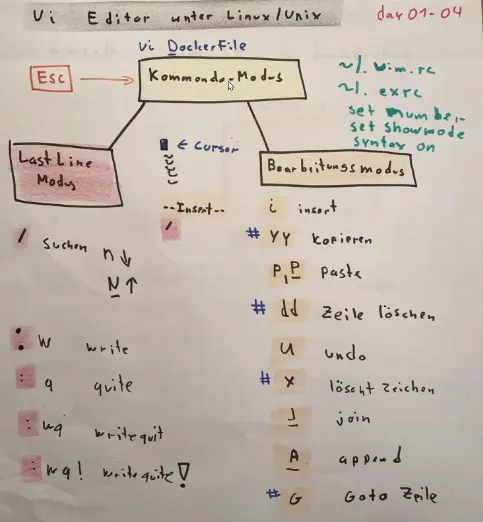 Vi Editor unter Linux/Unix
day 01-04
vi DockerFile
Esc
Kommando-Modus
~/.vim.rc
~/.exrc
set number
set showmode
syntax on
Last Line
Modus
← Cursor
~
~
~
~
Bearbeitungsmodus
--Insert--
/
i insert
/ Suchen n↓
N↑
# YY kopieren
P,P paste
# dd Zeile löschen
u undo
# x löscht Zeichen
J join
A append
# G Goto Zeile
:w write
:q quite
:wq writequit
:wq! writequite!